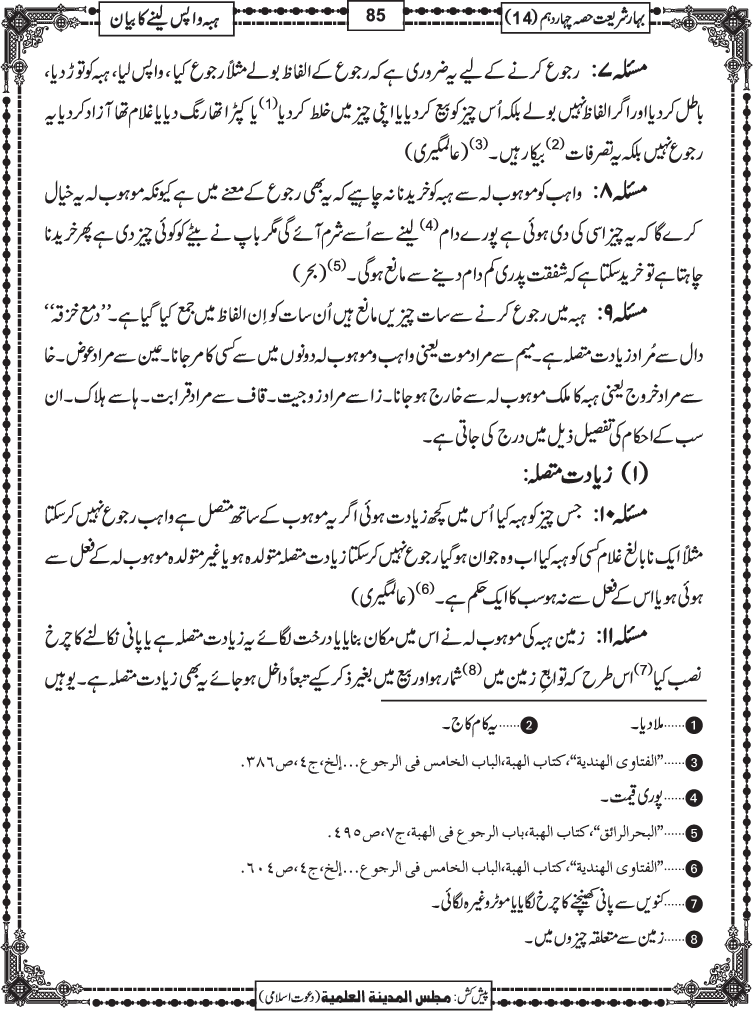 بہارِ شریعت حصہ چہاردہم (14)
85
ہبہ واپس لینے کا بیان
مسئلہ ۷: رجوع کرنے کے لیے یہ ضروری ہے کہ رجوع کے الفاظ بولے مثلاً رجوع کیا، واپس لیا، ہبہ کو توڑ دیا،
باطل کر دیا اور اگر الفاظ نہیں بولے بلکہ اُس چیز کو بیع کر دیا یا اپنی چیز میں خلط کر دیا(1) یا کپڑا تھا رنگ دیا یا غلام تھا آزاد کر دیا یہ
رجوع نہیں بلکہ یہ تصرفات(2) بیکار ہیں۔(3) (عالمگیری)
مسئلہ ۸: واہب کو موہوب لہ سے ہبہ کو خریدنا نہ چاہیے کہ یہ بھی رجوع کے معنے میں ہے کیونکہ موہوب لہ یہ خیال
کرے گا کہ یہ چیز اسی کی دی ہوئی ہے پورے دام(4) لینے سے اُسے شرم آئے گی مگر باپ نے بیٹے کو کوئی چیز دی ہے پھر خریدنا
چاہتا ہے تو خرید سکتا ہے کہ شفقت پدری کم دام دینے سے مانع ہوگی۔(5) (بحر)
مسئلہ ۹: ہبہ میں رجوع کرنے سے سات چیزیں مانع ہیں اُن سات کو اِن الفاظ میں جمع کیا گیا ہے۔ ”دمع خزقہ“
دال سے مُراد زیادت متصلہ ہے۔ میم سے مراد موت یعنی واہب و موہوب لہ دونوں میں سے کسی کا مر جانا۔ عین سے مراد عوض۔ خا
سے مراد خروج یعنی ہبہ کا ملک موہوب لہ سے خارج ہو جانا۔ زا سے مراد زوجیت۔ قاف سے مراد قرابت۔ ہا سے ہلاک۔ ان
سب کے احکام کی تفصیل ذیل میں درج کی جاتی ہے۔
(۱) زیادت متصلہ:
مسئلہ ۱۰: جس چیز کو ہبہ کیا اُس میں کچھ زیادت ہوئی اگر یہ موہوب کے ساتھ متصل ہے واہب رجوع نہیں کر سکتا
مثلاً ایک نابالغ غلام کسی کو ہبہ کیا اب وہ جوان ہو گیا رجوع نہیں کر سکتا زیادت متصلہ متولدہ ہو یا غیر متولدہ موہوب لہ کے فعل سے
ہوئی ہو یا اس کے فعل سے نہ ہو سب کا ایک حکم ہے۔(6) (عالمگیری)
مسئلہ ۱۱: زمین ہبہ کی موہوب لہ نے اس میں مکان بنایا یا درخت لگائے یہ زیادت متصلہ ہے یا پانی نکالنے کا چرخ
نصب کیا(7) اس طرح کہ توابعِ زمین میں(8) شمار ہو اور بیع میں بغیر ذکر کیے تبعاً داخل ہو جائے یہ بھی زیادت متصلہ ہے۔ یوہیں
1 ......ملا دیا۔ 2 ......یہ کام کاج۔
3 ......”الفتاوی الھندیة“، کتاب الھبة، الباب الخامس فی الرجوع...إلخ، ج٤، ص٣٨٦.
4 ......پوری قیمت۔
5 ......”البحر الرائق“، کتاب الھبة، باب الرجوع فی الھبة، ج٧، ص٤٩٥.
6 ......”الفتاوی الھندیة“، کتاب الھبة، الباب الخامس فی الرجوع...إلخ، ج٤، ص٦٠٤.
7 ......کنویں سے پانی کھینچنے کا چرخ لگایا یا موٹر وغیرہ لگائی۔
8 ......زمین سے متعلقہ چیزوں میں۔
پیش کش: مجلس المدینة العلمیة (دعوت اسلامی)